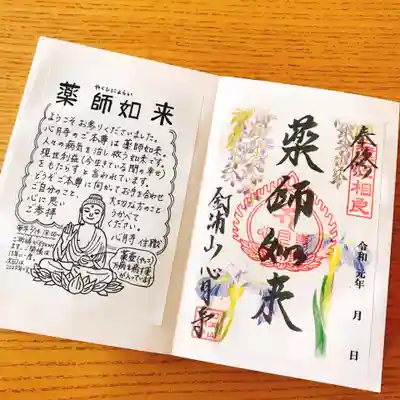 やくしにょらい
薬師如来
ようこそお参りくださいました。
心月寺のご本尊は薬師如来。
人々の病気を治し救う如来です。
現世利益(今生きている間の幸せ)
をもたらすと言われています。
どうぞご本尊に向かてお手を合わせ
ご自分のこと、大切な方のこと
心に思い
うかべて
ご参拝
ください。
心月寺 住職
薬壺(やっこ)
奉修
相良
薬師如来
心月寺
令和元年 月 日